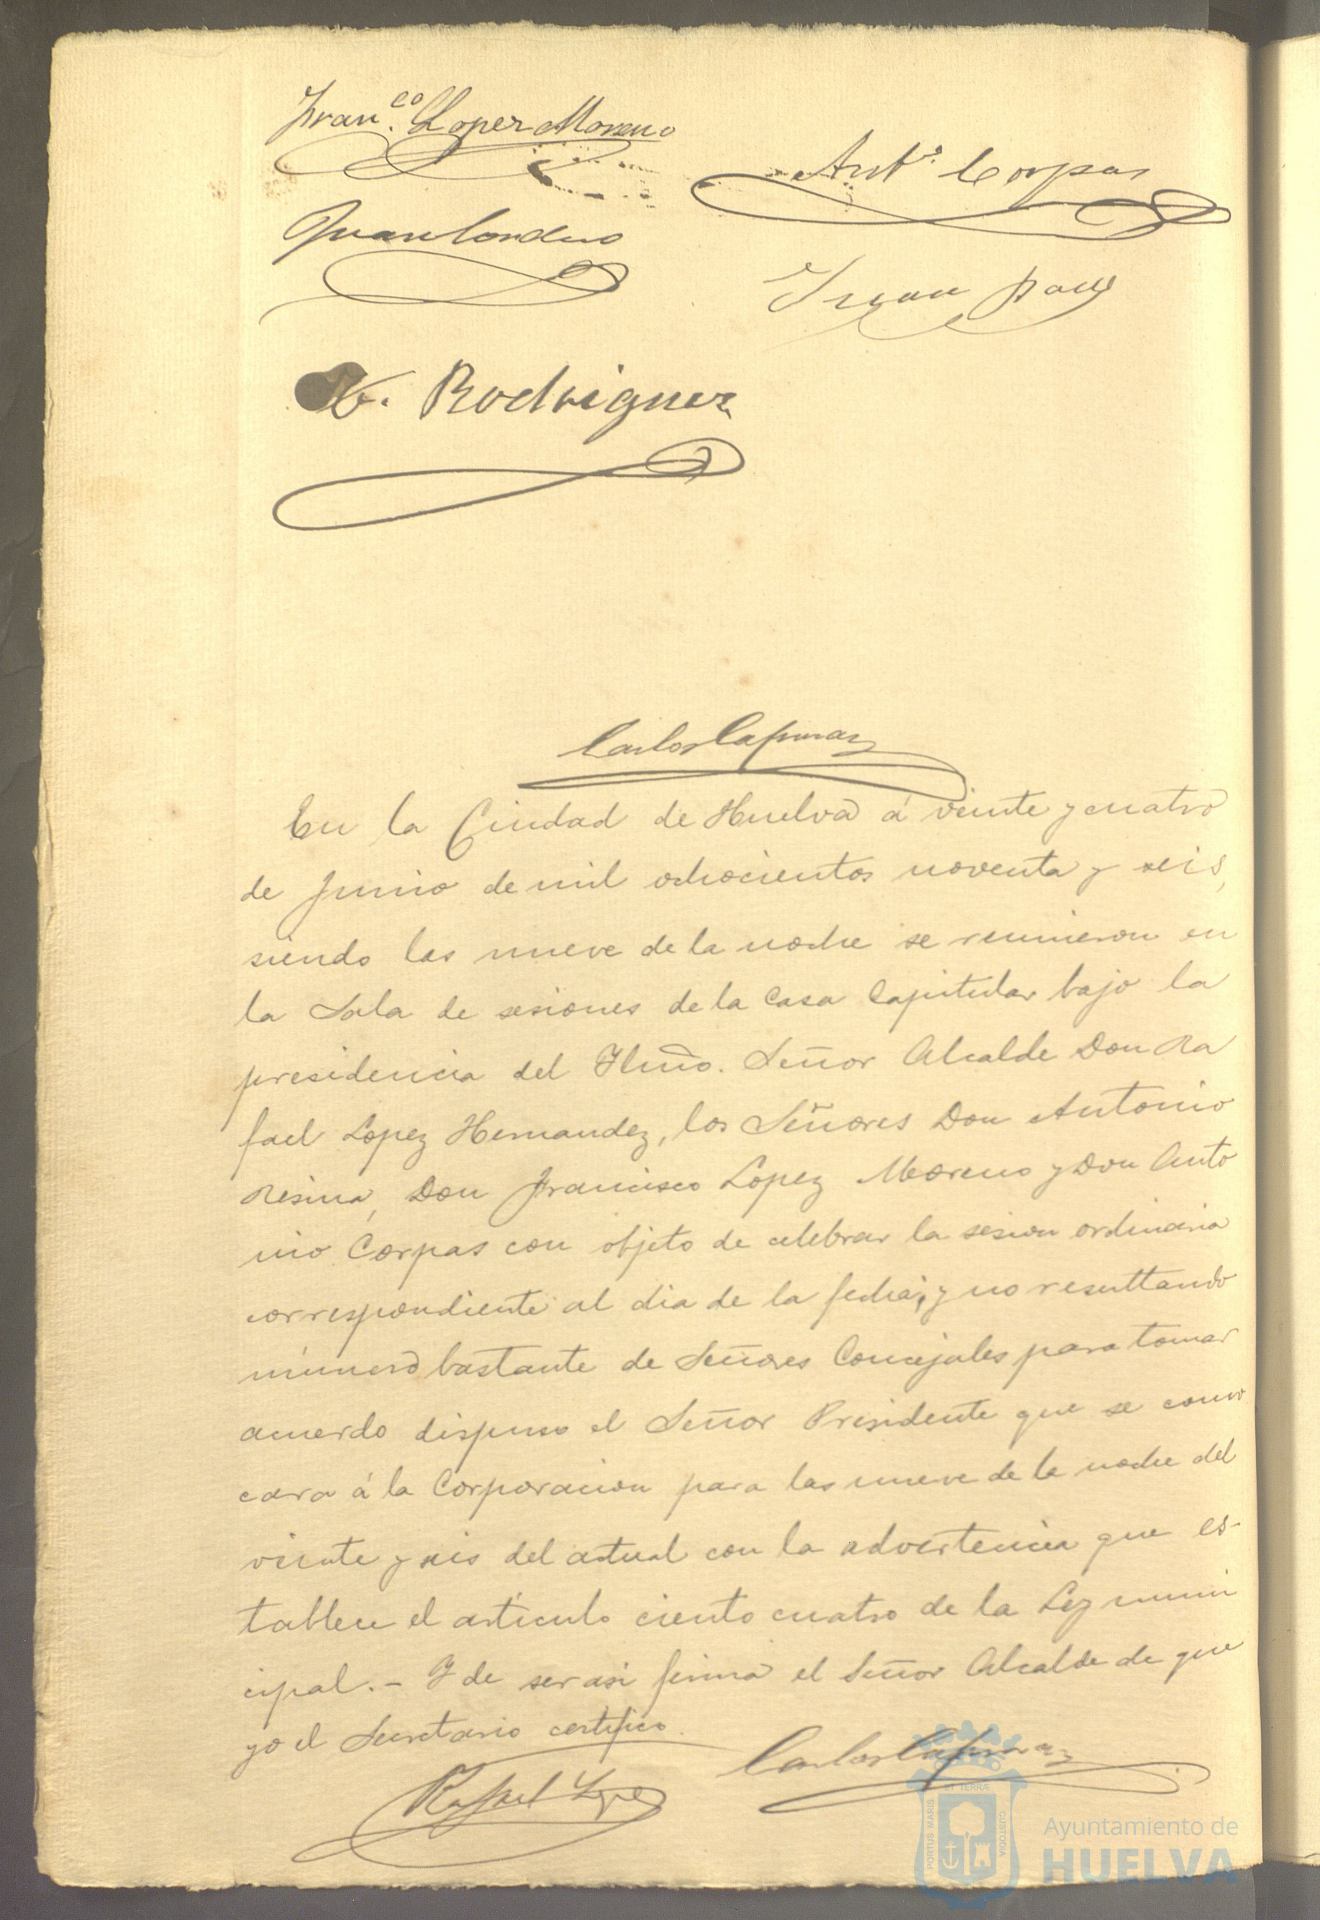 Fran.co Lopez Moreno
Ant.o Corpas
Juan Cordero
Juan
Rodriguez
Carlos
En la Ciudad de Huelva á veinte y cuatro
de Junio de mil ochocientos noventa y seis,
siendo las nueve de la noche se reunieron en
la Sala de sesiones de la Casa Capitular bajo la
presidencia del Ilmo. Señor Alcalde Don Ra
fael Lopez Hernandez, los Señores Don Antonio
Resina, Don Francisco Lopez Moreno y Don Anto
nio Corpas con objeto de celebrar la sesion ordinaria
correspondiente al dia de la fecha, y no resultando
número bastante de Señores Concejales para tomar
acuerdo dispuso el Señor Presidente que se convo
cara á la Corporacion para las nueve de la noche del
veinte y seis del actual con la advertencia que es-
tablece el articulo ciento cuatro de la Ley muni
cipal.- Y de ser asi firma el Señor Alcalde de que
yo el Secretario certifico.
Rafael Lopez
Carlos
PORTUS MARIS ET TERRÆ CUSTODIA
Ayuntamiento de
HUELVA